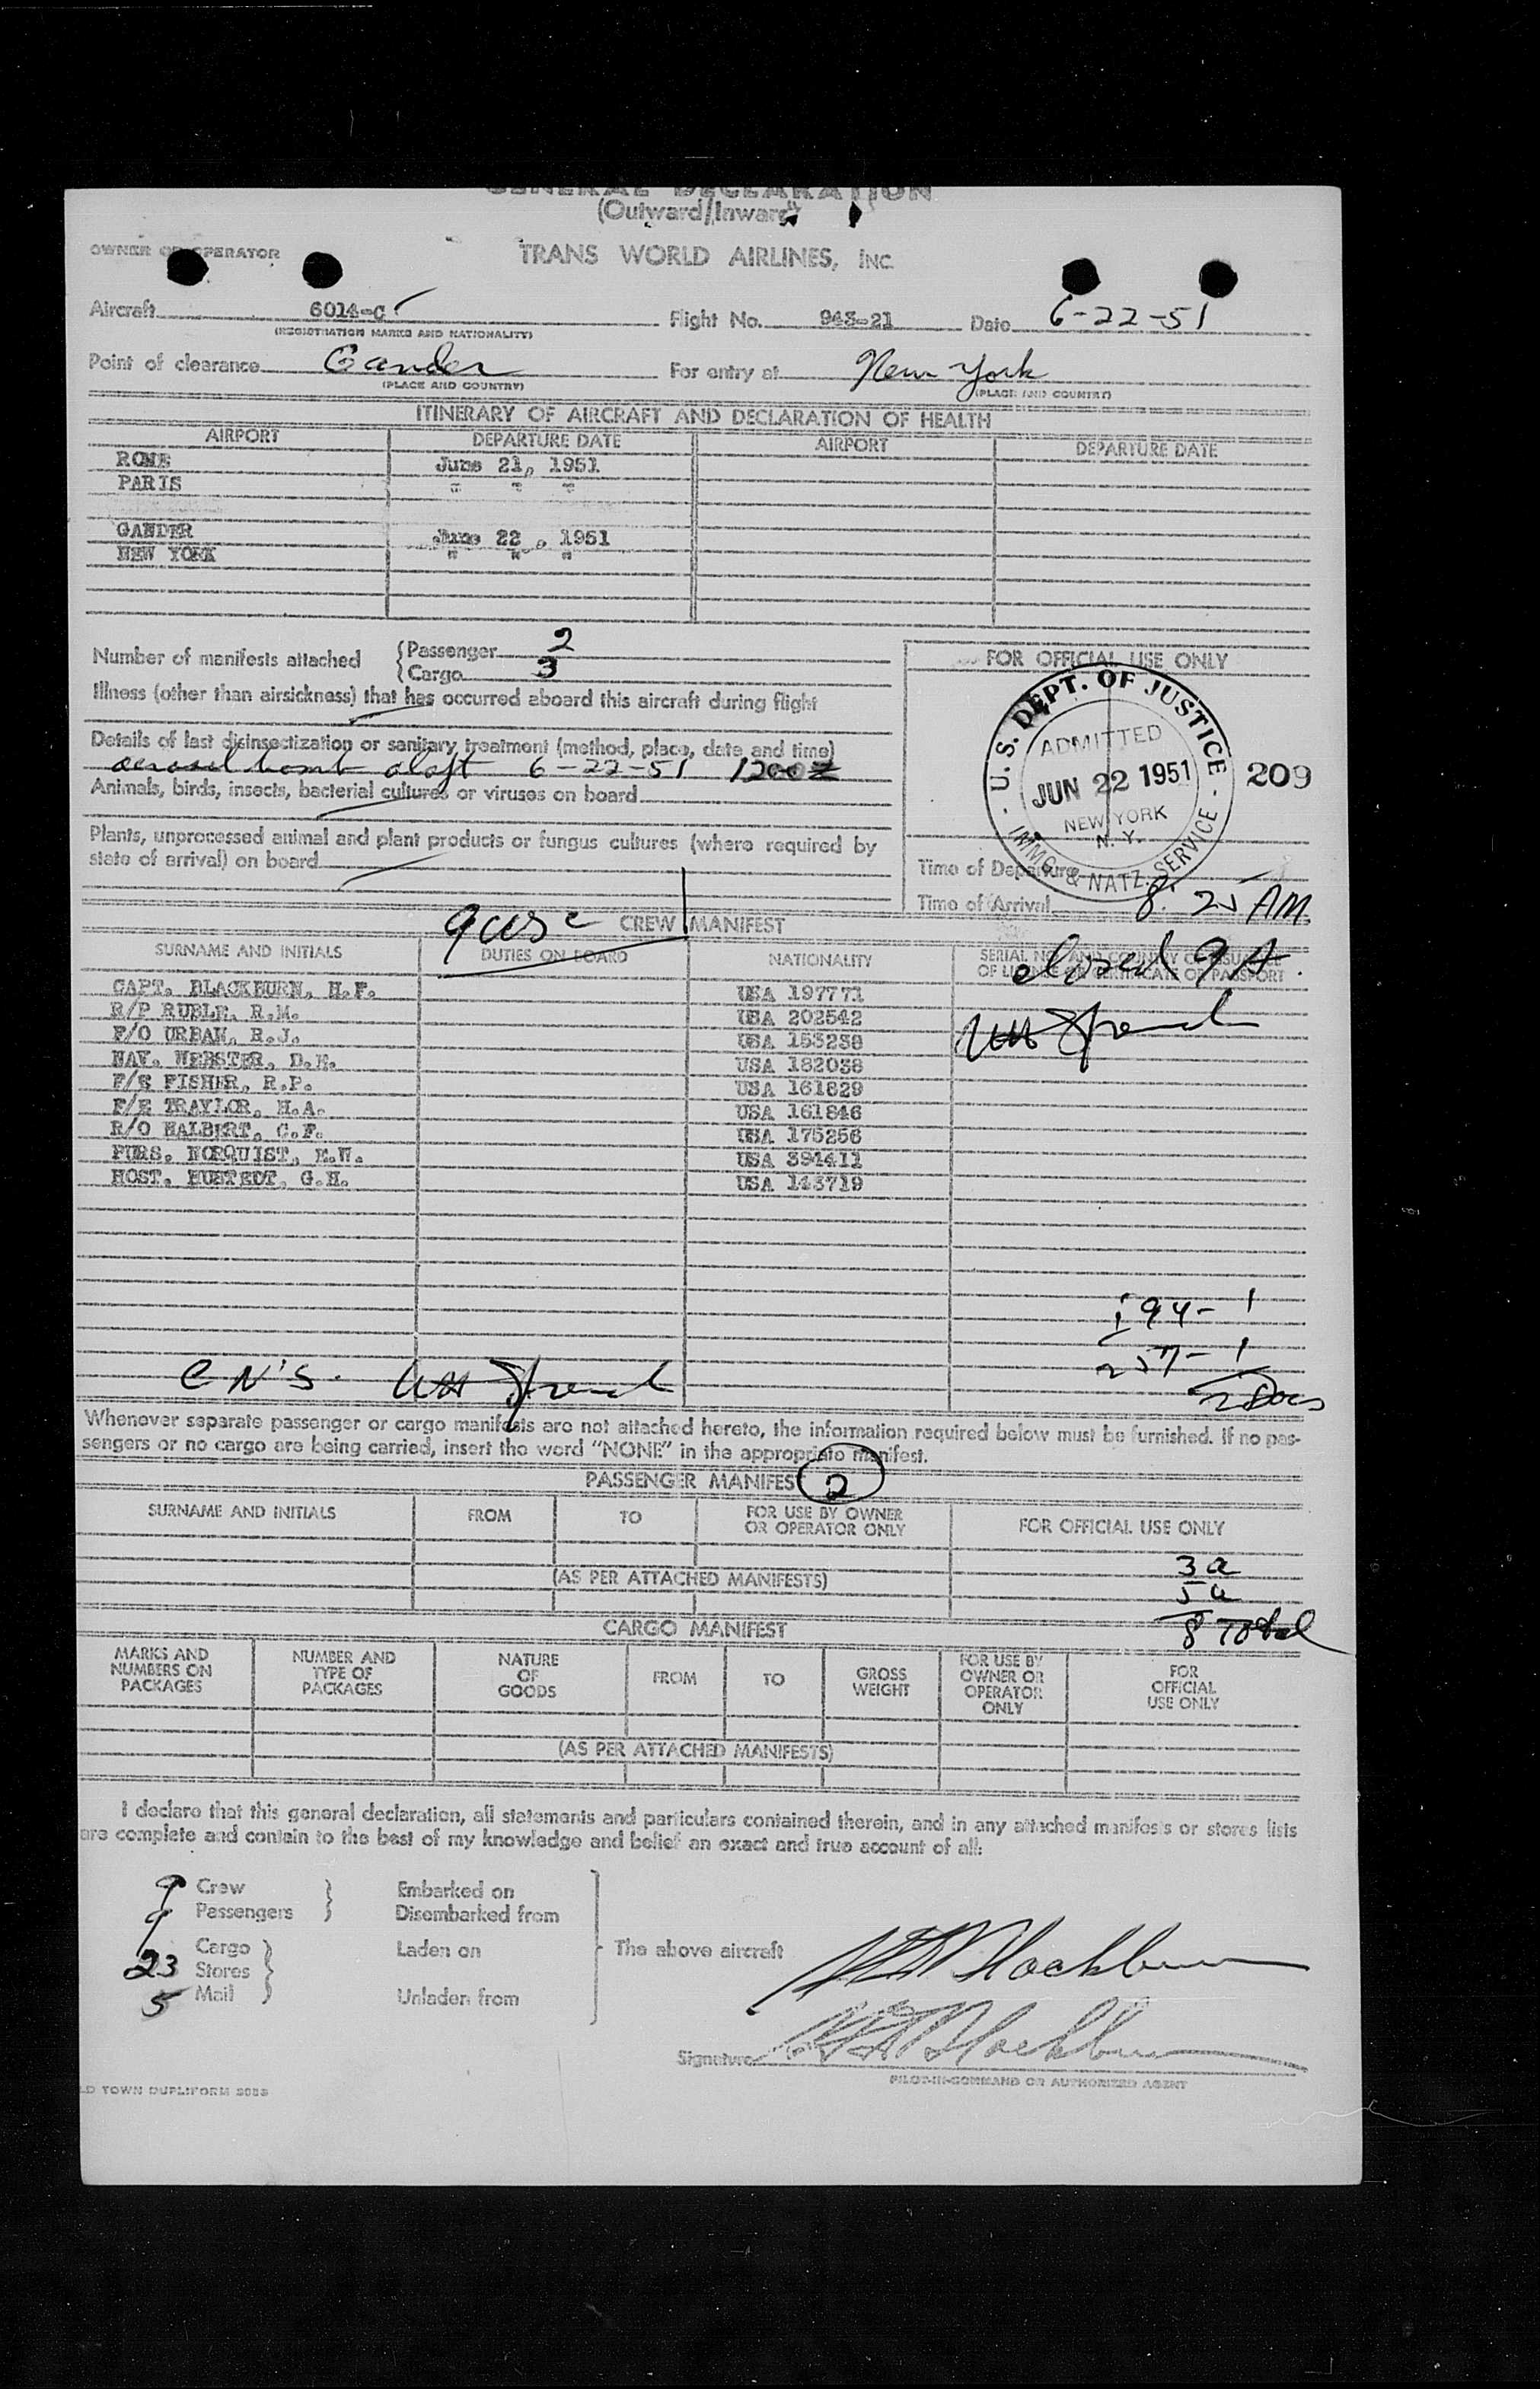 GENERAL DECLARATION
(Outward/Inward)
OWNER OR OPERATOR TRANS WORLD AIRLINES, INC.
Aircraft 6014-C Flight No. 943-21 Date 6-22-51
(REGISTRATION MARKS AND NATIONALITY)
Point of clearance Gander For entry at New York
(PLACE AND COUNTRY) (PLACE AND COUNTRY)
ITINERARY OF AIRCRAFT AND DECLARATION OF HEALTH
AIRPORT DEPARTURE DATE AIRPORT DEPARTURE DATE
ROME June 21, 1951
PARIS " " "
GANDER June 22, 1951
NEW YORK " " "
Number of manifests attached { Passenger 2
{ Cargo 3
FOR OFFICIAL USE ONLY
Illness (other than airsickness) that has occurred aboard this aircraft during flight
Details of last disinsectization or sanitary treatment (method, place, date and time)
aerosol bomb aloft 6-22-51 1200Z
Animals, birds, insects, bacterial cultures or viruses on board
Plants, unprocessed animal and plant products or fungus cultures (where required by
state of arrival) on board
U.S. DEPT. OF JUSTICE
ADMITTED
JUN 22 1951 209
NEW YORK
N. Y.
IMMG. & NATZ. SERVICE
Time of Departure
Time of Arrival 8.25 AM
CREW MANIFEST
SURNAME AND INITIALS DUTIES ON BOARD NATIONALITY SERIAL NO. AND COUNTRY OF ISSUANCE
OF LICENSE OR CERTIFICATE OR PASSPORT
closed 9A.
CAPT. BLACKBURN, H.F. USA 197771
R/P RUBLE, R.M. USA 202542
F/O URBAN, R.J. USA 153238
NAV. WEBSTER, D.E. USA 182038
F/E FISHER, R.P. USA 161829
F/E TRAYLOR, H.A. USA 161846
R/O HALBERT, C.F. USA 175256
PURS. NORQUIST, E.W. USA 394411
HOST. HUSTEDT, G.H. USA 143719
194- 1
257- 1
2 Docs
C N'S.
Whenever separate passenger or cargo manifests are not attached hereto, the information required below must be furnished. If no pas-
sengers or no cargo are being carried, insert the word "NONE" in the appropriate manifest.
PASSENGER MANIFEST 2
SURNAME AND INITIALS FROM TO FOR USE BY OWNER OR OPERATOR ONLY FOR OFFICIAL USE ONLY
3a
(AS PER ATTACHED MANIFESTS)
5a
8 Total
CARGO MANIFEST
MARKS AND NUMBERS ON PACKAGES NUMBER AND TYPE OF PACKAGES NATURE OF GOODS FROM TO GROSS WEIGHT FOR USE BY OWNER OR OPERATOR ONLY FOR OFFICIAL USE ONLY
(AS PER ATTACHED MANIFESTS)
I declare that this general declaration, all statements and particulars contained therein, and in any attached manifests or stores lists
are complete and contain to the best of my knowledge and belief an exact and true account of all:
9 Crew } Embarked on
9 Passengers } Disembarked from
Cargo } Laden on The above aircraft HF Blackburn
23 Stores }
5 Mail } Unladen from
Signature HF Blackburn
PILOT-IN-COMMAND OR AUTHORIZED AGENT
LD TOWN DUPLIFORM